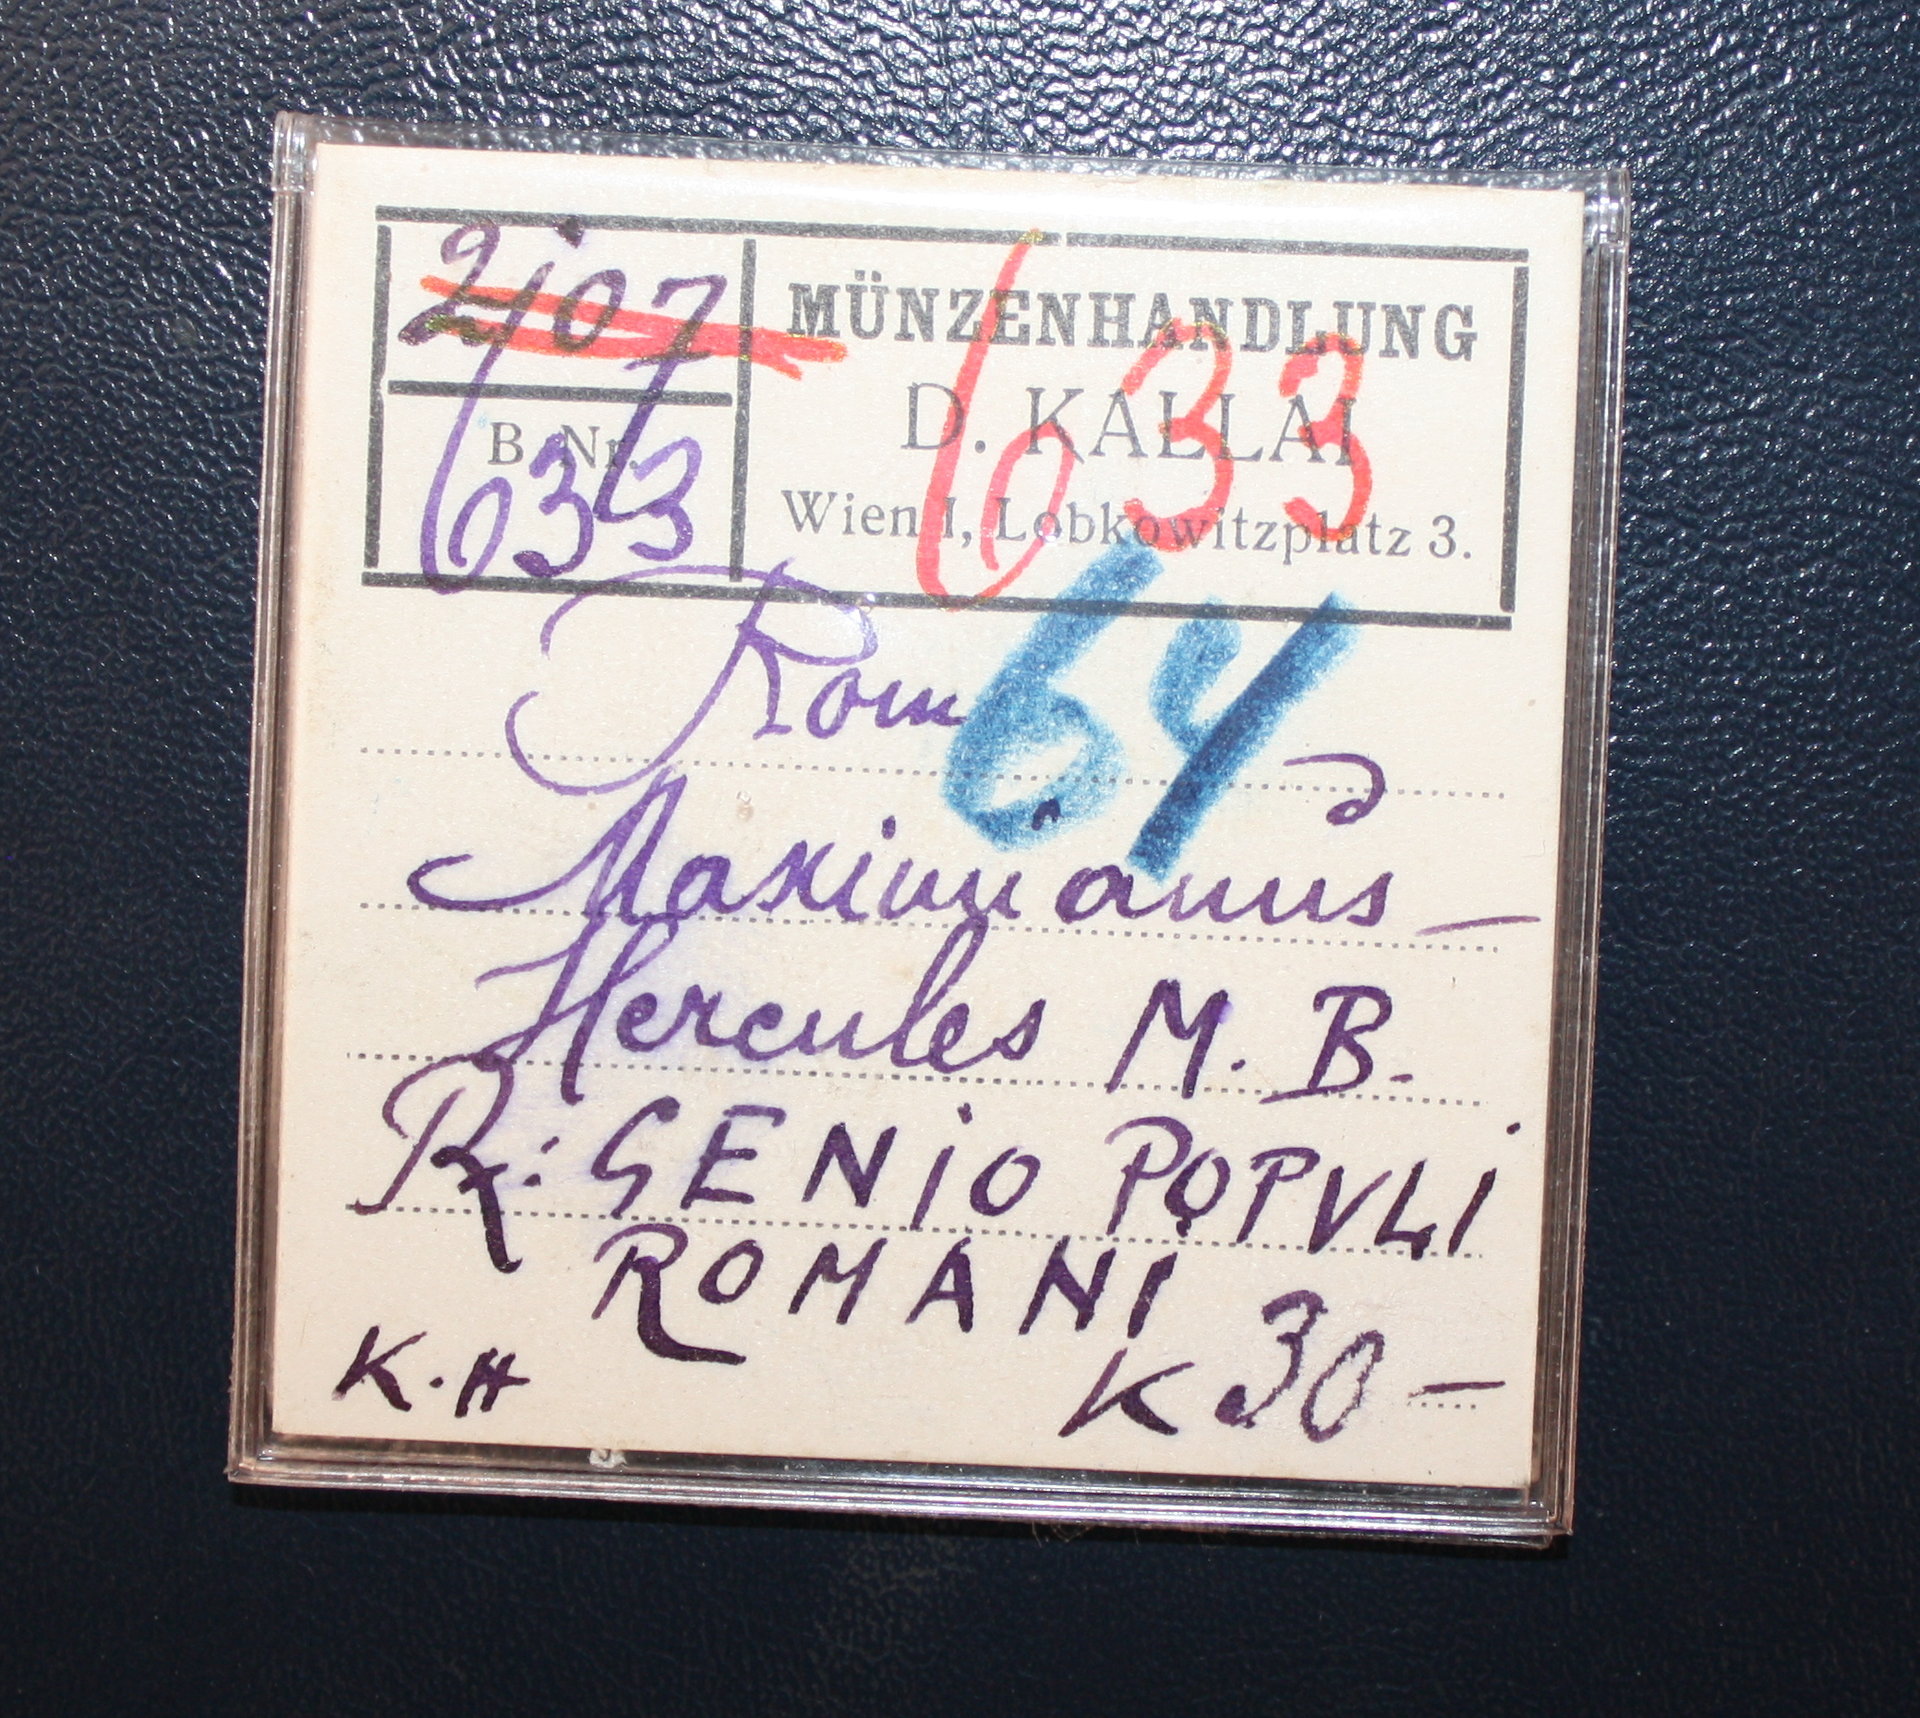 2107
B. Nr.
633
MÜNZENHANDLUNG
D. KALLAI
Wien I, Lobkowitzplatz 3.
633
Rom
64
Maximianus –
Hercules M. B.
R: GENIO POPVLI
ROMANI
K.H
K 30 –